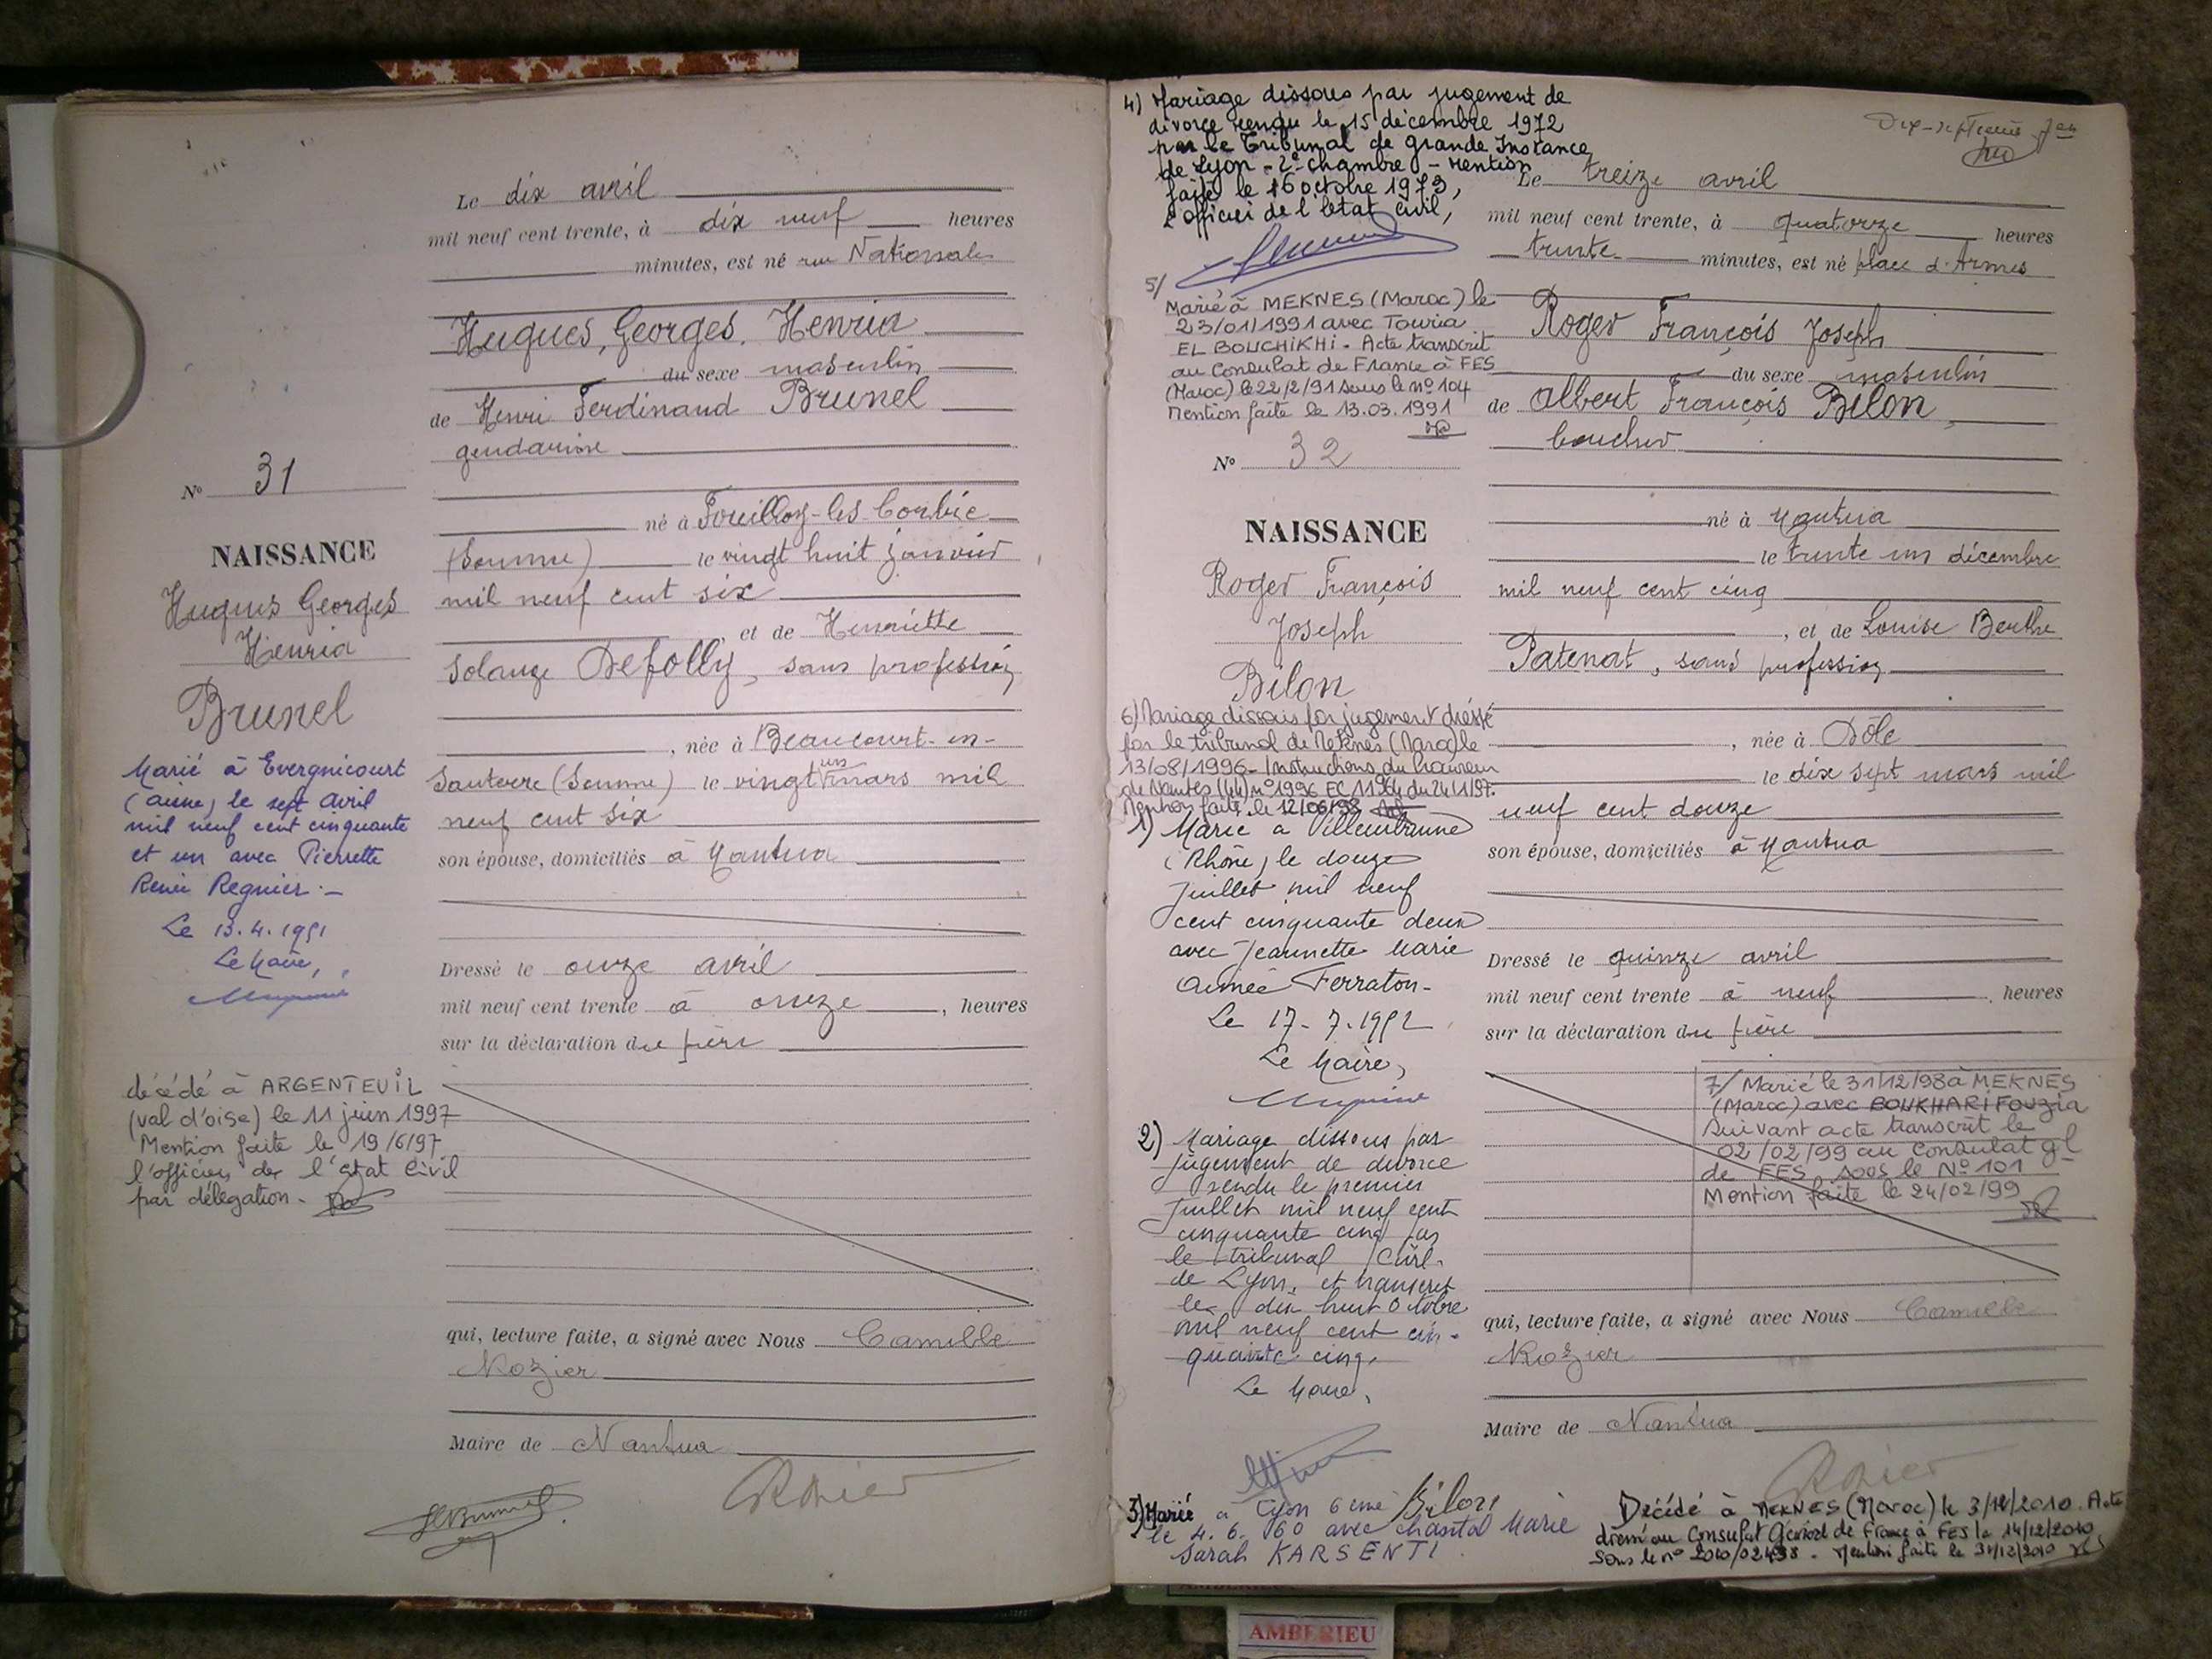 Le dix avril
mil neuf cent trente, à dix neuf heures
minutes, est né rue Nationale
Hugues, Georges, Henria
du sexe masculin
de Henri Ferdinand Brunel
gendarme
né à Fouilloy-les-Corbie
(Somme) le vingt huit janvier
mil neuf cent six
, et de Henriette
Solange Defolly, sans profession
, née à Beaucourt-en-
Santerre (Somme) le vingt un mars mil
neuf cent six
son épouse, domiciliés à Nantua
Dressé le onze avril
mil neuf cent trente à onze, heures
sur la déclaration du père
qui, lecture faite, a signé avec Nous Camille
Rozier
Maire de Nantua
HBrunel
Rozier
No 31
NAISSANCE
Hugues Georges
Henria
Brunel
Marié à Evergnicourt
(Aisne) le sept avril
mil neuf cent cinquante
et un avec Pierrette
Renée Regnier.-
Le 13.4.1951
Le Maire,
décédé à ARGENTEUIL
(val d'oise) le 11 juin 1997
Mention faite le 19/6/97
l'officier de l'état Civil
par délégation.
4) Mariage dissous par jugement de
divorce rendu le 15 décembre 1972
par le Tribunal de Grande Instance
de Lyon - 2e chambre - Mention
faite le 16 octobre 1973,
l'officier de l'état civil,
5/
Marié à MEKNES (Maroc) le
23/01/1991 avec Touria
EL BOUCHIKHI. Acte transcrit
au Consulat de France à FES
(Maroc) le 22/2/91 sous le no 104
Mention faite le 13.03.1991
No 32
NAISSANCE
Roger François
Joseph
Bilon
6) Mariage dissous par jugement dressé
par le tribunal de Meknès (Maroc) le
13/08/1996 - Instructions du Procureur
de Nantes (44) no 1996 EC 11964 du 24/1/97.
Mention faite le 12/06/98
1) Marié à Villeurbanne
(Rhône) le douze
juillet mil neuf
cent cinquante deux
avec Jeannette Marie
Aimée Ferraton-
Le 17-7-1952
Le Maire,
2) Mariage dissous par
jugement de divorce
rendu le premier
juillet mil neuf cent
cinquante cinq par
le tribunal Civil
de Lyon, et transcrit
le dix huit octobre
mil neuf cent cin-
quante cinq.
Le Maire,
3) Marié à Lyon 6eme
le 4.6.60 avec Chantal Marie
Sarah KARSENTI
Dix-septième
Le treize avril
mil neuf cent trente, à quatorze heures
trente minutes, est né place d'Armes
Roger François Joseph
du sexe masculin
de Albert François Bilon,
boucher
né à Nantua
le trente un décembre
mil neuf cent cinq
, et de Louise Berthe
Patenat, sans profession
, née à Dôle
le dix sept mars mil
neuf cent douze
son épouse, domiciliés à Nantua
Dressé le quinze avril
mil neuf cent trente à neuf, heures
sur la déclaration du père
7/ Marié le 31/12/98 à MEKNES
(Maroc) avec BOUKHARI FOUZIA
suivant acte transcrit le
02/02/99 au Consulat gl
de FES sous le No 101
Mention faite le 24/02/99
qui, lecture faite, a signé avec Nous Camille
Rozier
Maire de Nantua
Bilon
Rozier
Décédé à MEKNES (Maroc) le 3/12/2010. Acte
dressé au Consulat Général de France à FES le 14/12/2010
sous le no 2010/02438. Mention faite le 31/12/2010
AMBERIEU